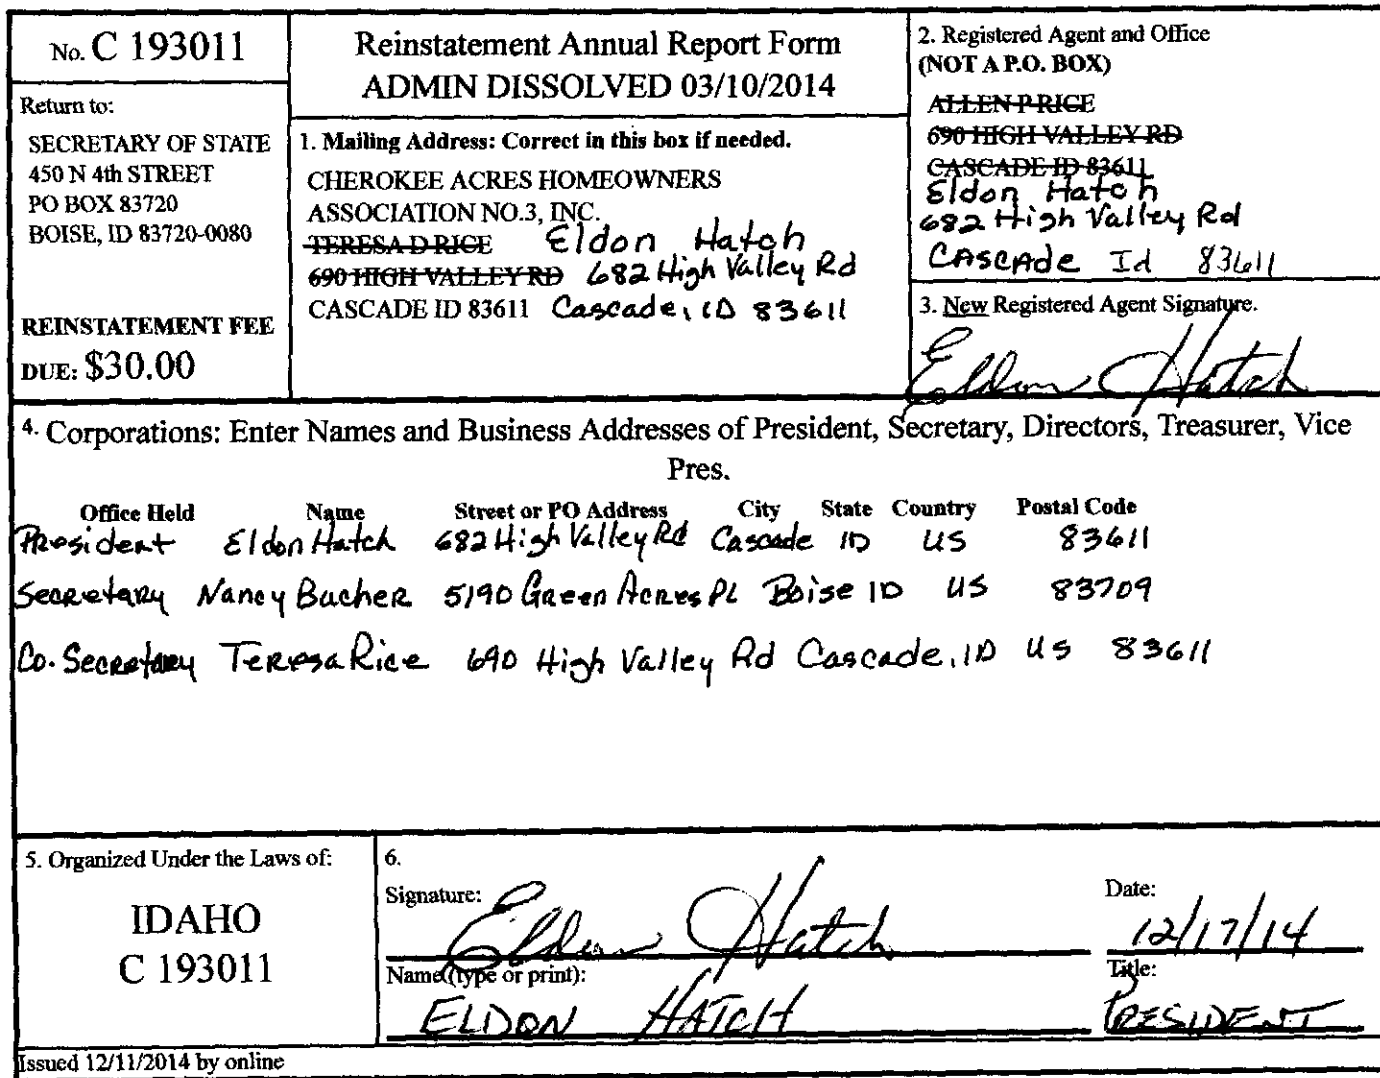 No. C 193011
Return to:
SECRETARY OF STATE
450 N 4th STREET
PO BOX 83720
BOISE, ID 83720-0080
REINSTATEMENT FEE
DUE: $30.00
Reinstatement Annual Report Form
ADMIN DISSOLVED 03/10/2014
1. Mailing Address: Correct in this box if needed.
CHEROKEE ACRES HOMEOWNERS
ASSOCIATION NO.3, INC.
TERESA D RICE Eldon Hatch
690 HIGH VALLEY RD 682 High Valley Rd
CASCADE ID 83611 Cascade, ID 83611
2. Registered Agent and Office
(NOT A P.O. BOX)
ALLEN P RICE
690 HIGH VALLEY RD
CASCADE ID 83611
Eldon Hatch
682 High Valley Rd
CASCADE Id 83611
3. New Registered Agent Signature.
Eldon Hatch
4. Corporations: Enter Names and Business Addresses of President, Secretary, Directors, Treasurer, Vice
Pres.
Office Held Name Street or PO Address City State Country Postal Code
President Eldon Hatch 682 High Valley Rd Cascade ID US 83611
Secretary Nancy Bucher 5190 Green Acres PL Boise ID US 83709
Co. Secretary Teresa Rice 690 High Valley Rd Cascade, ID US 83611
5. Organized Under the Laws of:
IDAHO
C 193011
6.
Signature: Eldon Hatch
Date: 12/17/14
Name (type or print):
ELDON HATCH
Title:
PRESIDENT
Issued 12/11/2014 by online